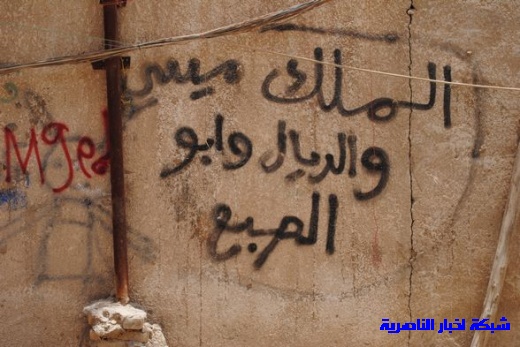 الملك ميسي
والريال وابو
المربع
Mged
شبكة اخبار الناصرية